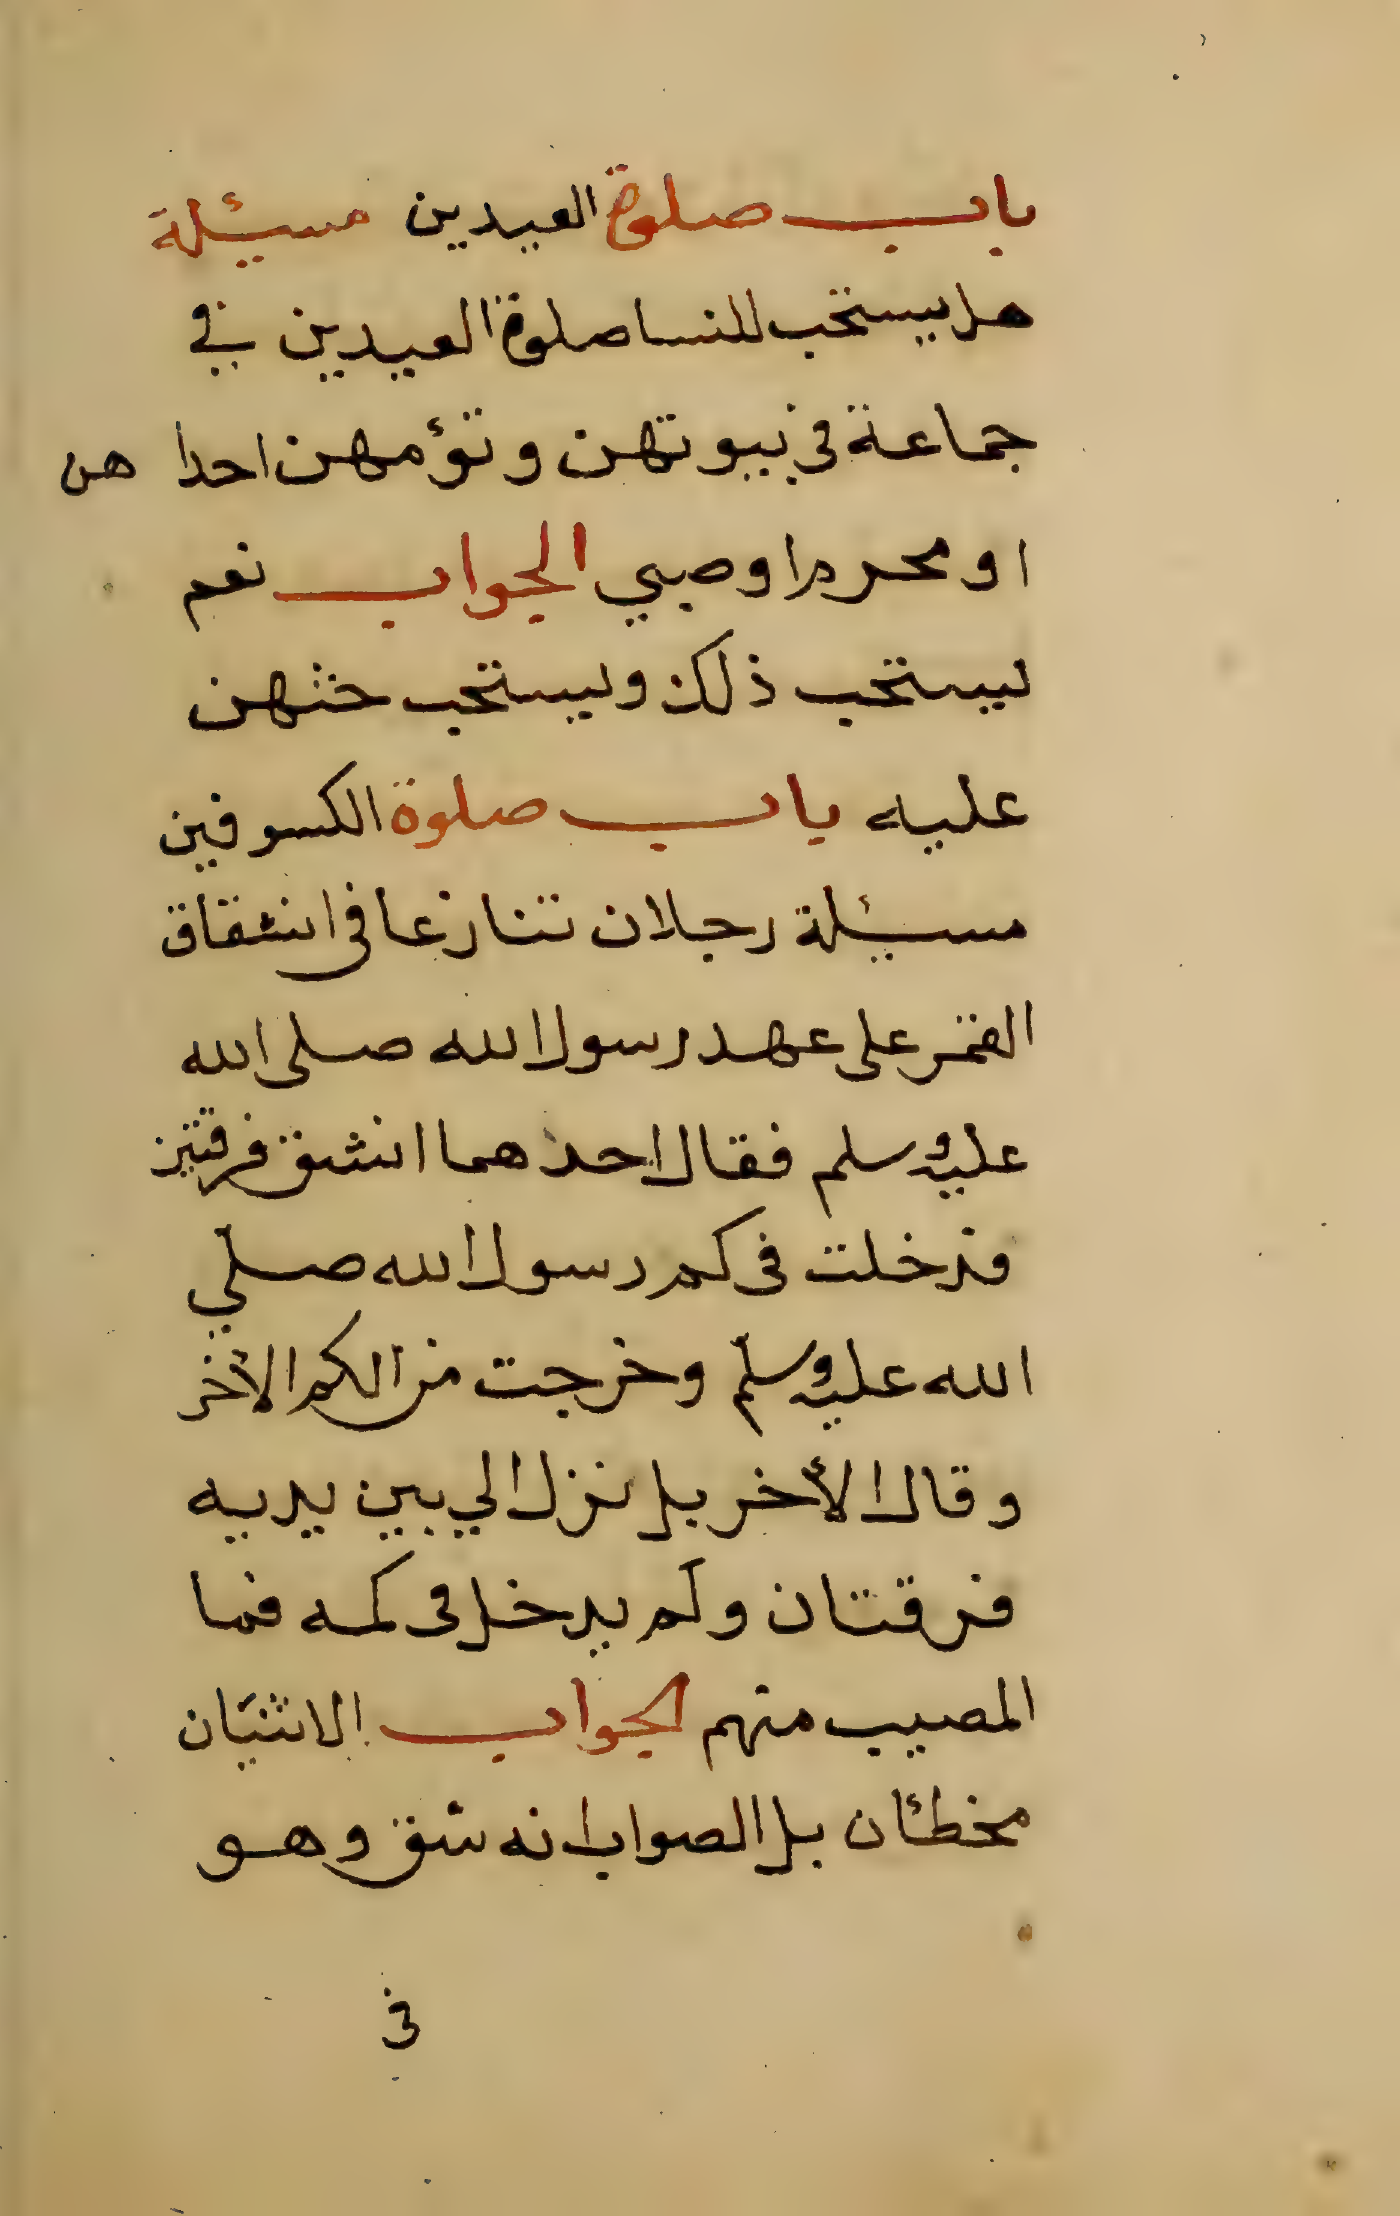 باب صلوة العيدين مسئلة
هل يستحب للنسا صلوة العيدين في
جماعة في بيوتهن وتؤمهن احدا هن
او محرم او صبي الجواب نعم
يستحب ذلك ويستحب حثهن
عليه باب صلوة الكسوفين
مسئلة رجلان تنازعا في انشقاق
القمر على عهد رسول الله صلى الله
عليه وسلم فقال احدهما انشق فرقتين
فدخلت في كم رسول الله صلي
الله عليه وسلم وخرجت من الكم الأخر
وقال الأخر بل نزل الي بين يديه
فرقتان ولم يدخل في كمه فما
المصيب منهم الجواب الاثنان
مخطئان بل الصواب انه شق وهو
في